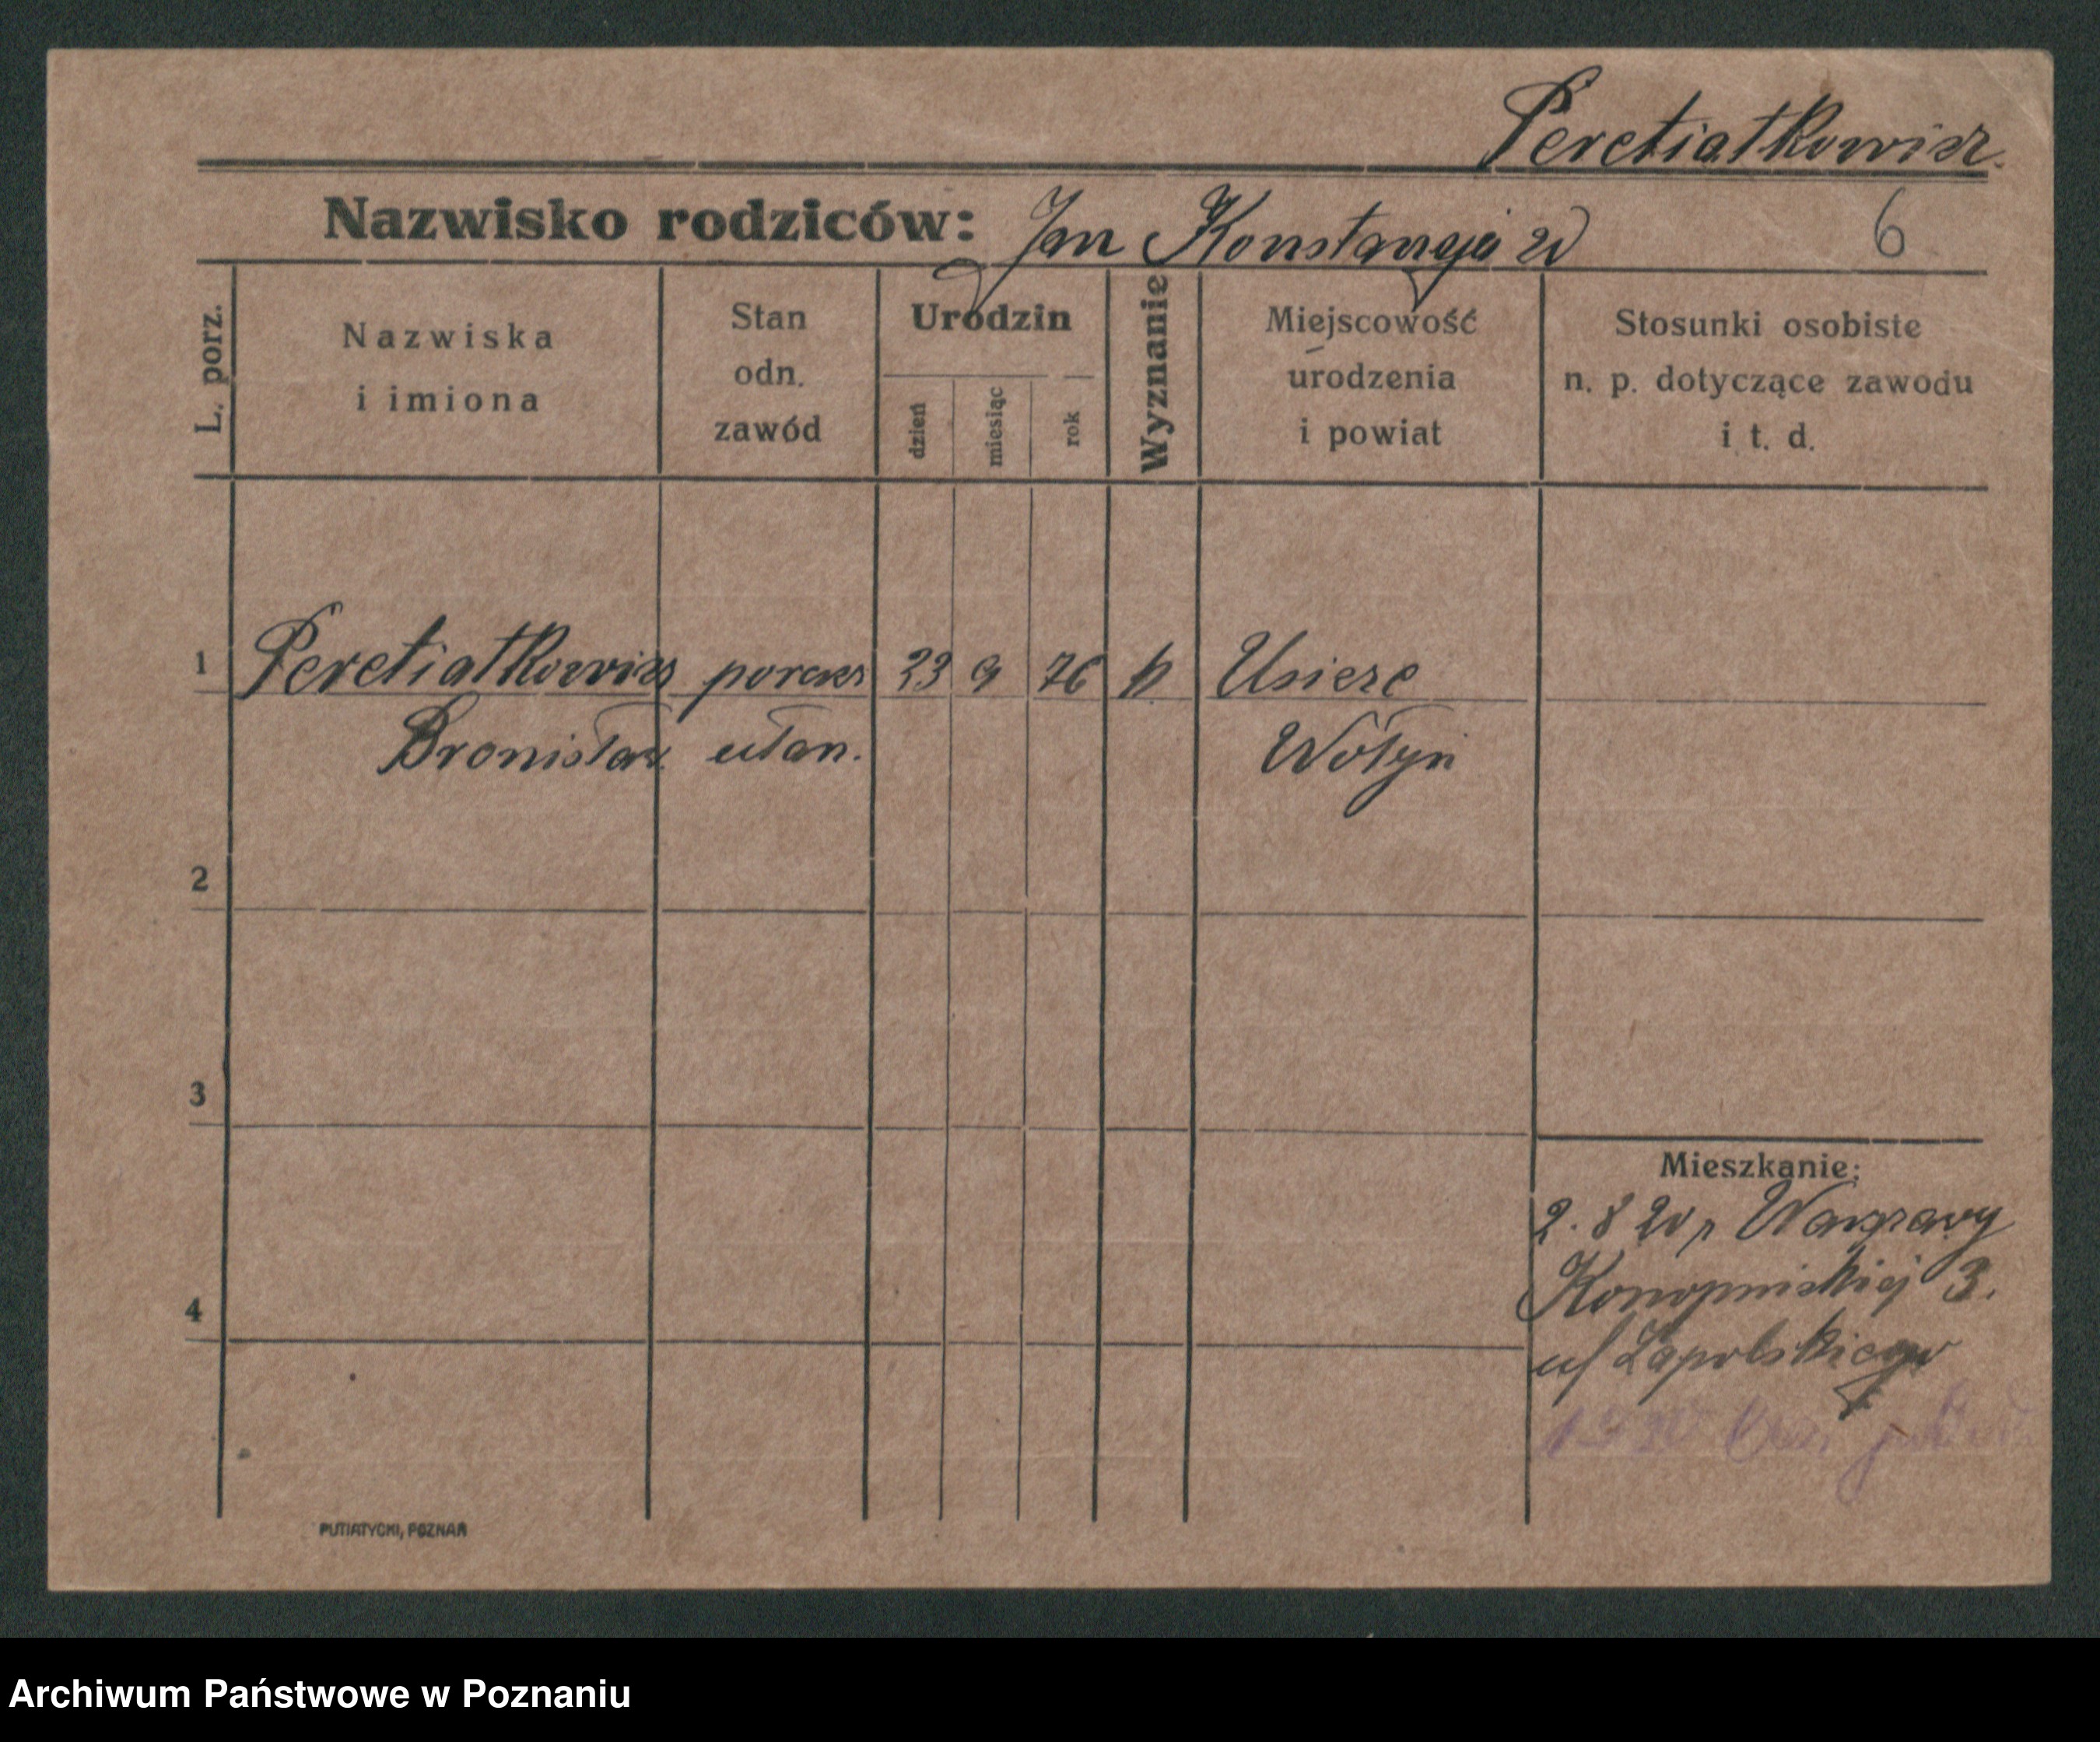 Peretiatkowicz.
Nazwisko rodziców: Jan Konstancja 6
L. porz.
Nazwiska
i imiona
Stan
odn.
zawód
Urodzin
dzień
miesiąc
rok
Wyznanie
Miejscowość
urodzenia
i powiat
Stosunki osobiste
n. p. dotyczące zawodu
i t. d.
1 Peretiatkowicz 23 9 76
Bronisław ułan. Wołyń
2
3
4
Mieszkanie:
2. 8 20 Warszawy
Konopnickiej 3.
Zapolskiego
PUTIATYCKI, POZNAŃ
Archiwum Państwowe w Poznaniu